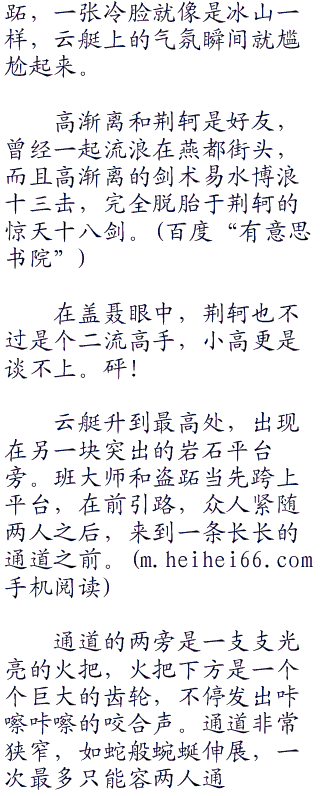 跖，一张冷脸就像是冰山一
样，云艇上的气氛瞬间就尴
尬起来。
高渐离和荆轲是好友，
曾经一起流浪在燕都街头，
而且高渐离的剑术易水博浪
十三击，完全脱胎于荆轲的
惊天十八剑。(百度“有意思
书院”)
在盖聂眼中，荆轲也不
过是个二流高手，小高更是
谈不上。砰！
云艇升到最高处，出现
在另一块突出的岩石平台
旁。班大师和盗跖当先跨上
平台，在前引路，众人紧随
两人之后，来到一条长长的
通道之前。(m.heihei66.com
手机阅读)
通道的两旁是一支支光
亮的火把，火把下方是一个
个巨大的齿轮，不停发出咔
嚓咔嚓的咬合声。通道非常
狭窄，如蛇般蜿蜒伸展，一
次最多只能容两人通